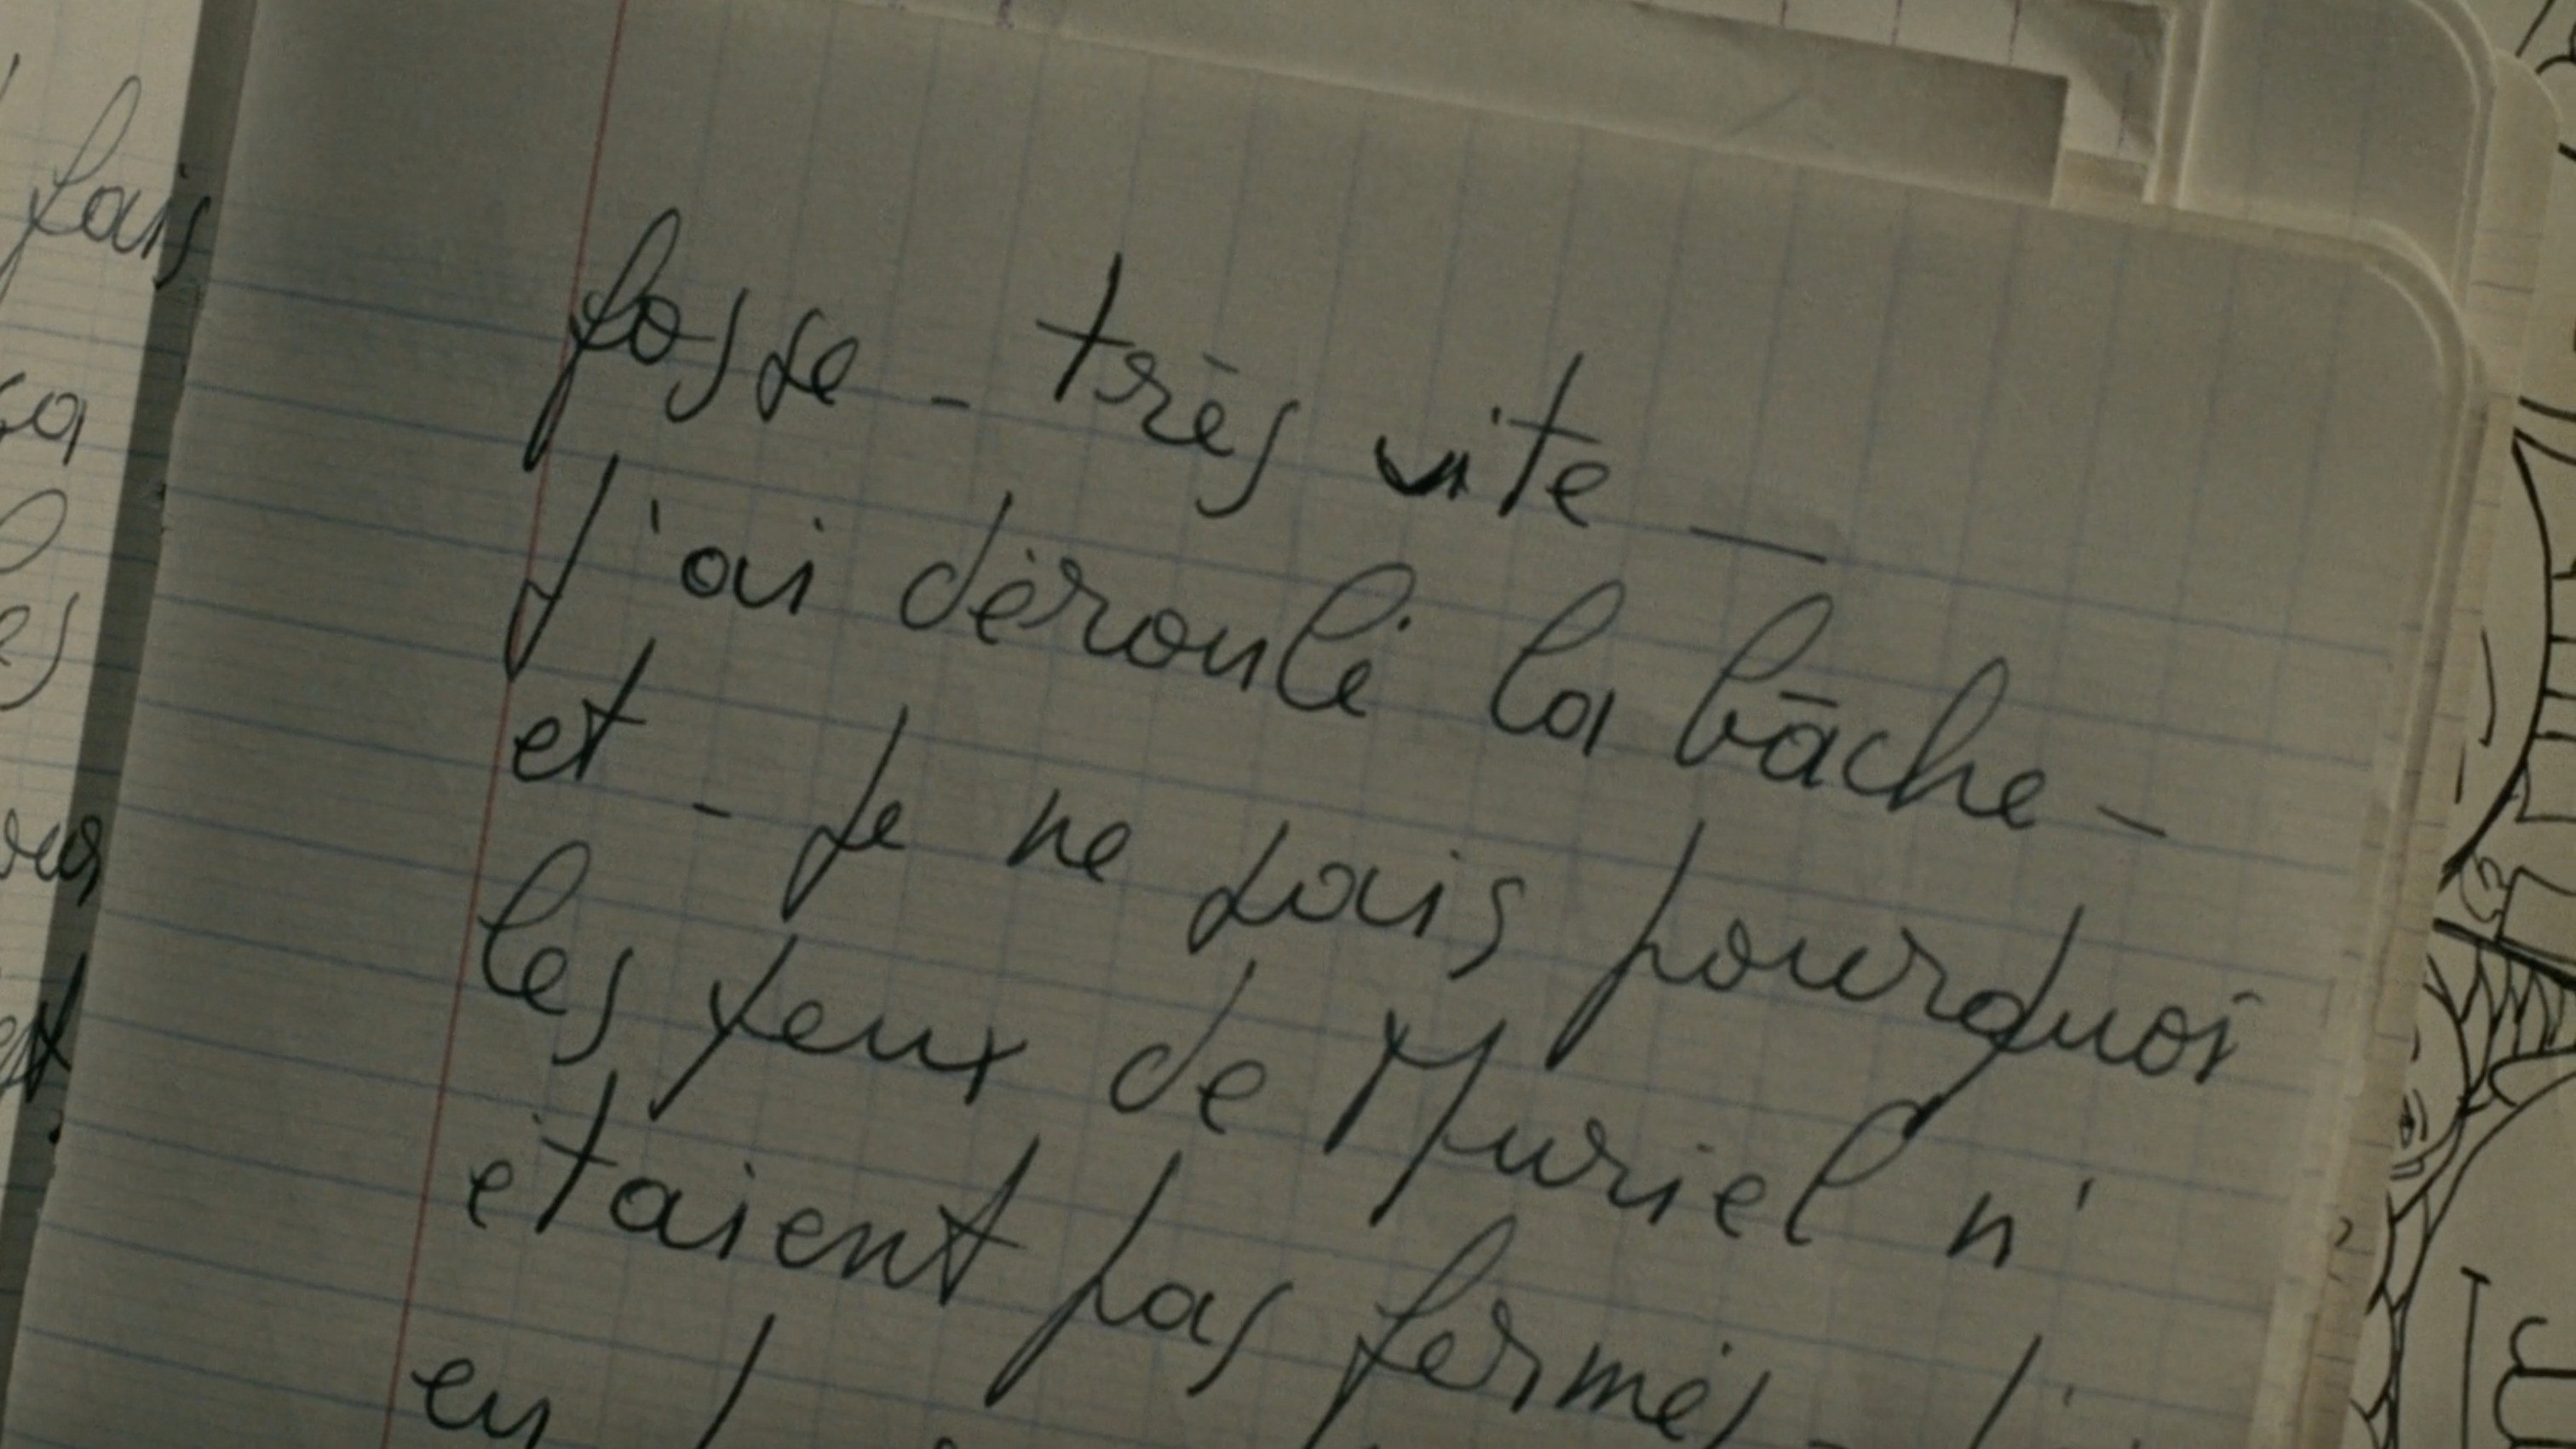 fais
fosse - très vite —
J'ai déroulé la bâche -
et - Je ne sais pourquoi
les yeux de Muriel n'
étaient pas fermés -
en
ça